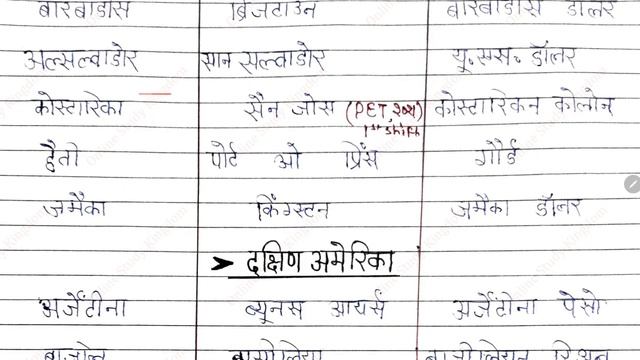 बारबाडोस ब्रिजटाउन बारबाडोस डॉलर
अल्सल्वाडोर सान सल्वाडोर यू.एस. डॉलर
कोस्टारिका सैन जोस (PET, कोस्टारिकन कोलोन
1st shift
हैती पोर्ट ओ प्रिंस गौर्ड
जमैका किंग्स्टन जमैका डॉलर
➤ दक्षिण अमेरिका
अर्जेंटीना ब्यूनस आयर्स अर्जेंटीना पेसो